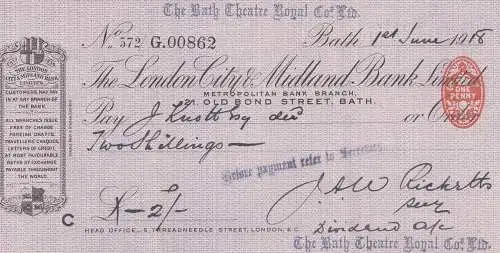 The Bath Theatre Royal Co. Ltd.
No 572 G.00862
Bath 1st June 1918
THE LONDON CITY & MIDLAND BANK LIMITED
CUSTOMERS MAY PAY IN AT ANY BRANCH OF THE BANK.
ALL BRANCHES ISSUE FREE OF CHARGE FOREIGN DRAFTS, TRAVELLERS CHEQUES, LETTERS OF CREDIT, AT MOST FAVOURABLE RATES OF EXCHANGE PAYABLE THROUGHOUT THE WORLD.
The London City & Midland Bank Limited
METROPOLITAN BANK BRANCH,
OLD BOND STREET, BATH.
ONE PENNY
Pay J
or Order
Two Shillings —
Before payment refer to Secretary
C
£ — 2/-
J. A. W. Ricketts
Secy
Dividend A/c
HEAD OFFICE, 5, THREADNEEDLE STREET, LONDON, E.C.
The Bath Theatre Royal Co. Ltd.